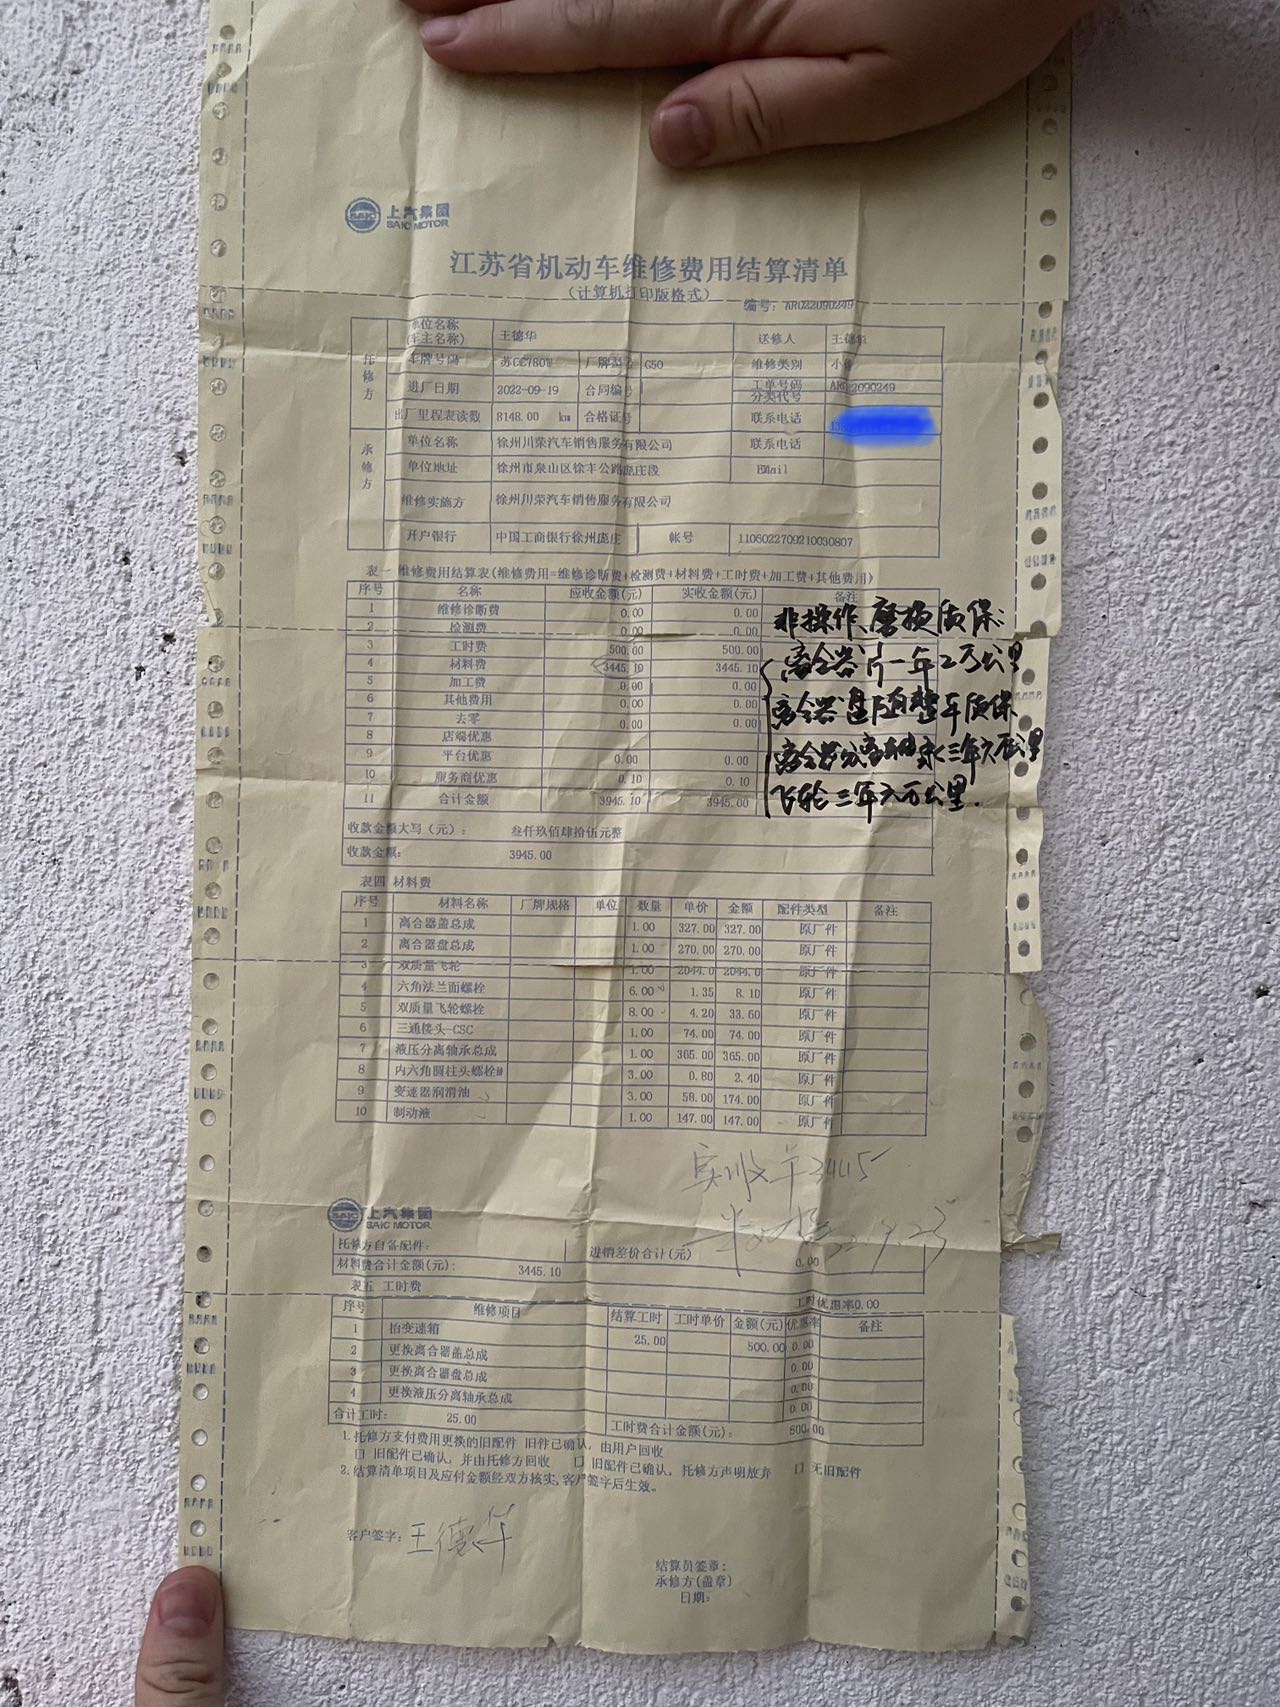 上汽集团
SAIC MOTOR
江苏省机动车维修费用结算清单
(计算机打印版格式)
编号: AR022090249
托修方
单位名称(车主名称) 王德华 送修人 王德华
车牌号码 苏CC780W 厂牌型号 G50 维修类别 小修
进厂日期 2022-09-19 合同编号 工单号码 AR022090249
分类代号
出厂里程表读数 8148.00 km 合格证号 联系电话
承修方
单位名称 徐州川荣汽车销售服务有限公司 联系电话
单位地址 徐州市泉山区徐丰公路庞庄段 EMail
维修实施方 徐州川荣汽车销售服务有限公司
开户银行 中国工商银行徐州庞庄 帐号 1106022709210030807
表一 维修费用结算表(维修费用=维修诊断费+检测费+材料费+工时费+加工费+其他费用)
序号 名称 应收金额(元) 实收金额(元) 备注
1 维修诊断费 0.00 0.00
2 检测费 0.00 0.00
3 工时费 500.00 500.00
4 材料费 3445.10 3445.10
5 加工费 0.00 0.00
6 其他费用 0.00 0.00
7 去零 0.00 0.00
8 店端优惠
9 平台优惠 0.00 0.00
10 服务商优惠 0.10 0.10
11 合计金额 3945.10 3945.00
非操作、磨损质保
离合器片一年2万公里
离合器盖随整车质保
离合器分离轴承三年六万公里
飞轮三年六万公里.
收款金额大写(元): 叁仟玖佰肆拾伍元整
收款金额: 3945.00
表四 材料费
序号 材料名称 厂牌规格 单位 数量 单价 金额 配件类型 备注
1 离合器盖总成 1.00 327.00 327.00 原厂件
2 离合器盘总成 1.00 270.00 270.00 原厂件
3 双质量飞轮 1.00 2044.0 2044.0 原厂件
4 六角法兰面螺栓 6.00 1.35 8.10 原厂件
5 双质量飞轮螺栓 8.00 4.20 33.60 原厂件
6 三通接头-CSC 1.00 74.00 74.00 原厂件
7 液压分离轴承总成 1.00 365.00 365.00 原厂件
8 内六角圆柱头螺栓 3.00 0.80 2.40 原厂件
9 变速器润滑油 3.00 58.00 174.00 原厂件
10 制动液 1.00 147.00 147.00 原厂件
实收
上汽集团
SAIC MOTOR
托修方自备配件: 进销差价合计(元) 0.00
材料费合计金额(元): 3445.10
表五 工时费 工时优惠率0.00
序号 维修项目 结算工时 工时单价 金额(元) 优惠率 备注
1 抬变速箱 25.00 500.00 0.00
2 更换离合器盖总成 0.00
3 更换离合器盘总成 0.00
4 更换液压分离轴承总成 0.00
合计工时: 25.00 工时费合计金额(元): 500.00
1.托修方支付费用更换的旧配件 旧件已确认,由用户回收
□ 旧配件已确认,并由托修方回收 □ 旧配件已确认,托修方声明放弃 □ 无旧配件
2.结算清单项目及应付金额经双方核实,客户签字后生效。
客户签字: 王德华
结算员签章:
承修方(盖章)
日期: